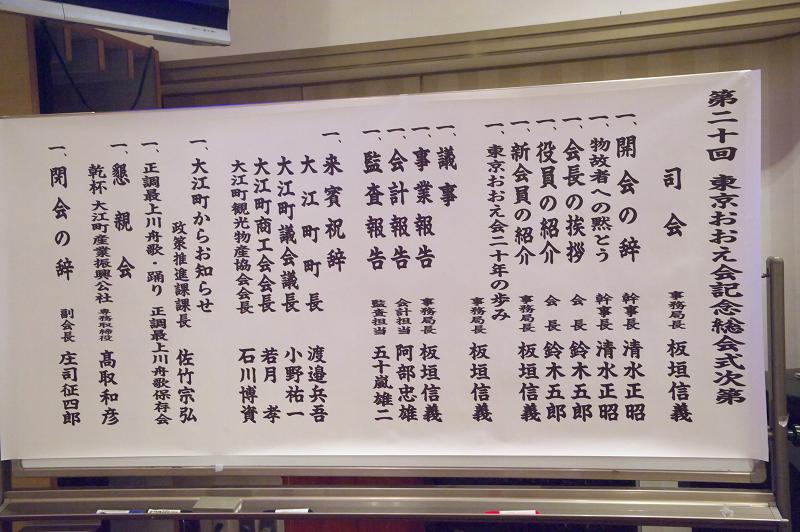 第二十回 東京おおえ会記念総会式次第
司会 事務局長 板垣信義
一、開会の辞 幹事長 清水正昭
一、物故者への黙とう 幹事長 清水正昭
一、会長の挨拶 会長 鈴木五郎
一、役員の紹介 会長 鈴木五郎
一、新会員の紹介 事務局長 板垣信義
一、東京おおえ会二十年の歩み
事務局長 板垣信義
一、議事
一、事業報告 事務局長 板垣信義
一、会計報告 会計担当 阿部忠雄
一、監査報告 監査担当 五十嵐雄二
一、来賓祝辞
大江町町長 渡邉兵吾
大江町議会議長 小野祐一
大江町商工会会長 若月孝
大江町観光物産協会会長 石川博資
一、大江町からお知らせ
政策推進課課長 佐竹宗弘
一、正調最上川舟歌・踊り 正調最上川舟歌保存会
一、懇親会
乾杯 大江町産業振興公社 専務取締役 髙取和彦
一、閉会の辞 副会長 庄司征四郎